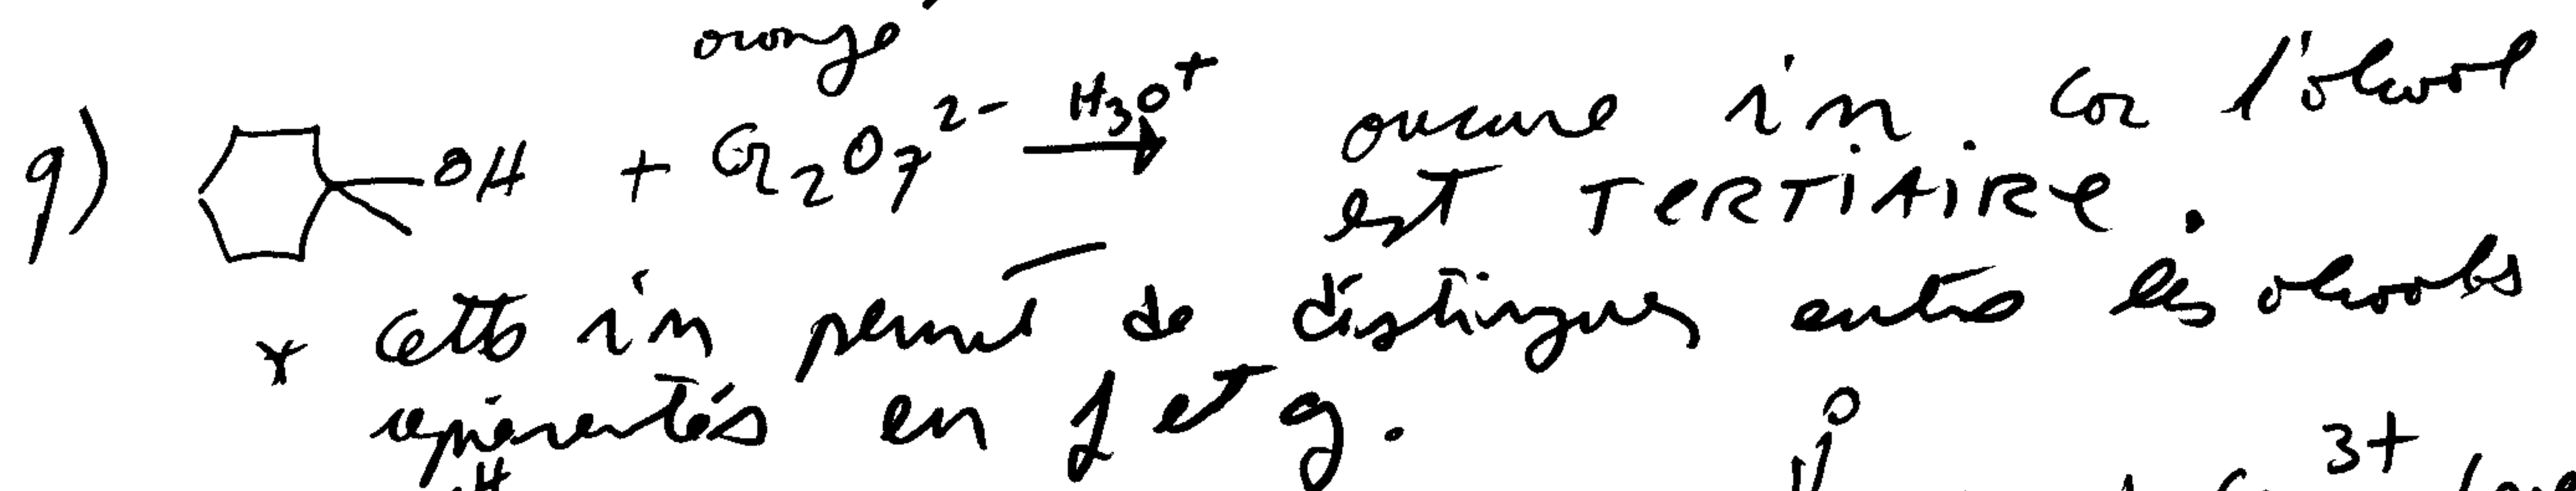 orange
g) OH + Cr2O7^2- H3O+ → aucune i'n. Car l'alcool
est TERTIAIRE.
* Cette i'n permet de distinguer entre les alcools
représentés en f et g.
H O 3+